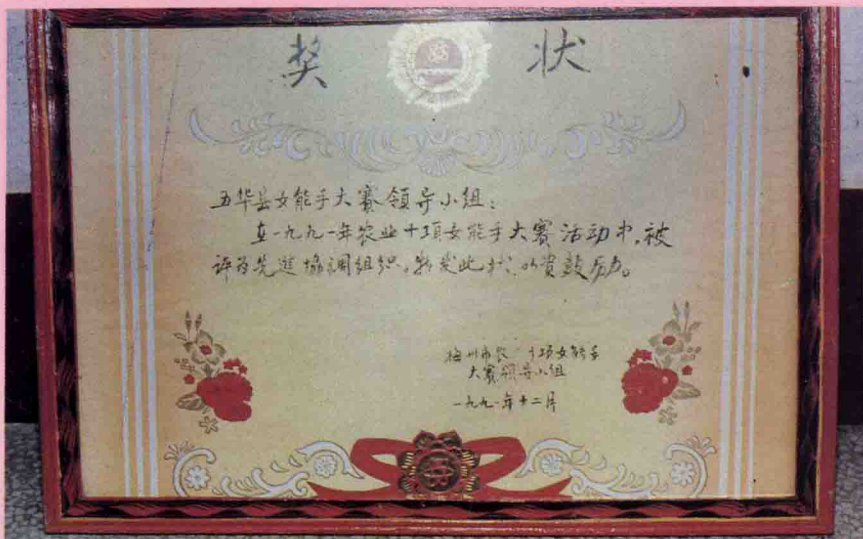 奖 状
五华县女能手大赛领导小组：
在一九九一年农业十项女能手大赛活动中，被
评为先进协调组织，特发此状，以资鼓励。
梅州市农 十项女能手
大赛领导小组
一九九一年十二月